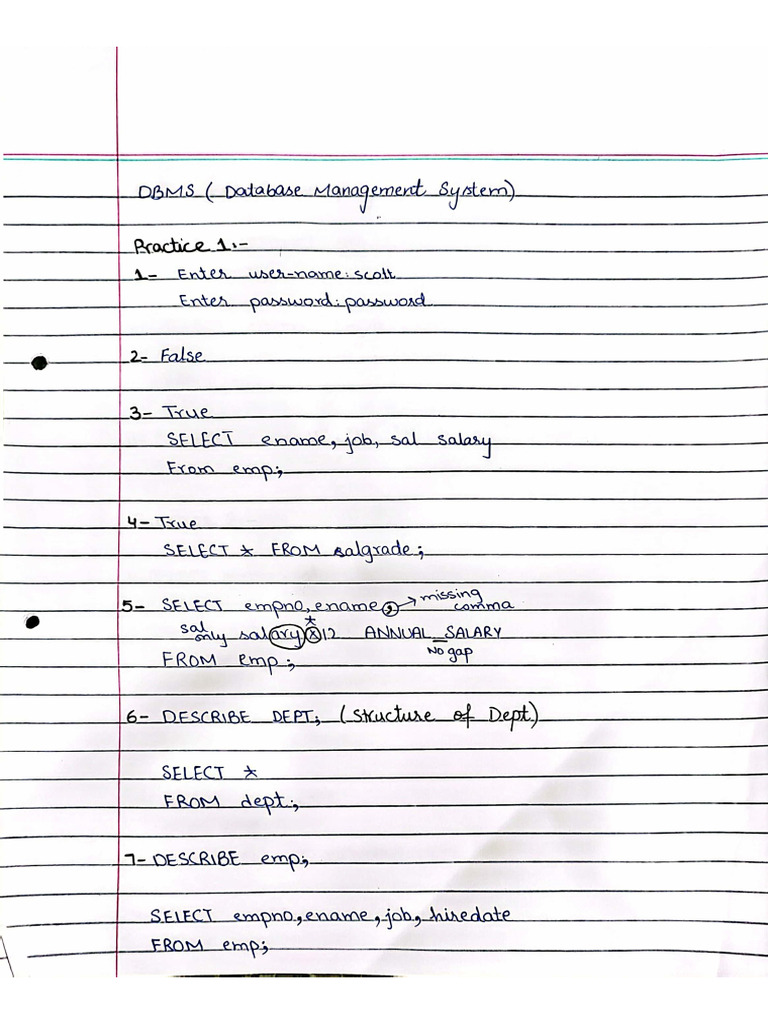 DBMS ( Database Management System)
Practice 1:-
1- Enter user-name: scott
Enter password: password
2- False
3- True
SELECT ename, job, sal salary
From emp;
4- True
SELECT * FROM salgrade;
5- SELECT empno, ename , → missing comma
sal only salary x * 12 ANNUAL_SALARY
No gap
FROM emp;
6- DESCRIBE DEPT; (Structure of Dept.)
SELECT *
FROM dept;
7- DESCRIBE emp;
SELECT empno, ename, job, hiredate
FROM emp;